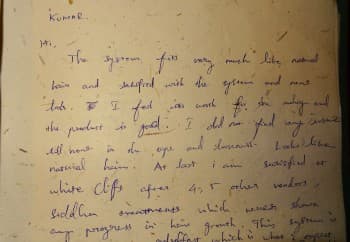 KUMAR.
Hi,
The system fits very much like normal
hair and satisfied with the system and new
look. I feel its worth for the money and
the product is good. I did not find any
till now in the ape and Looks like
natural hair. At last i am satisfied at
white Cliffs after 4, 5 other vendors,
Siddha treatments which never shown
any progress in hair growth, This system is
which is what i expect